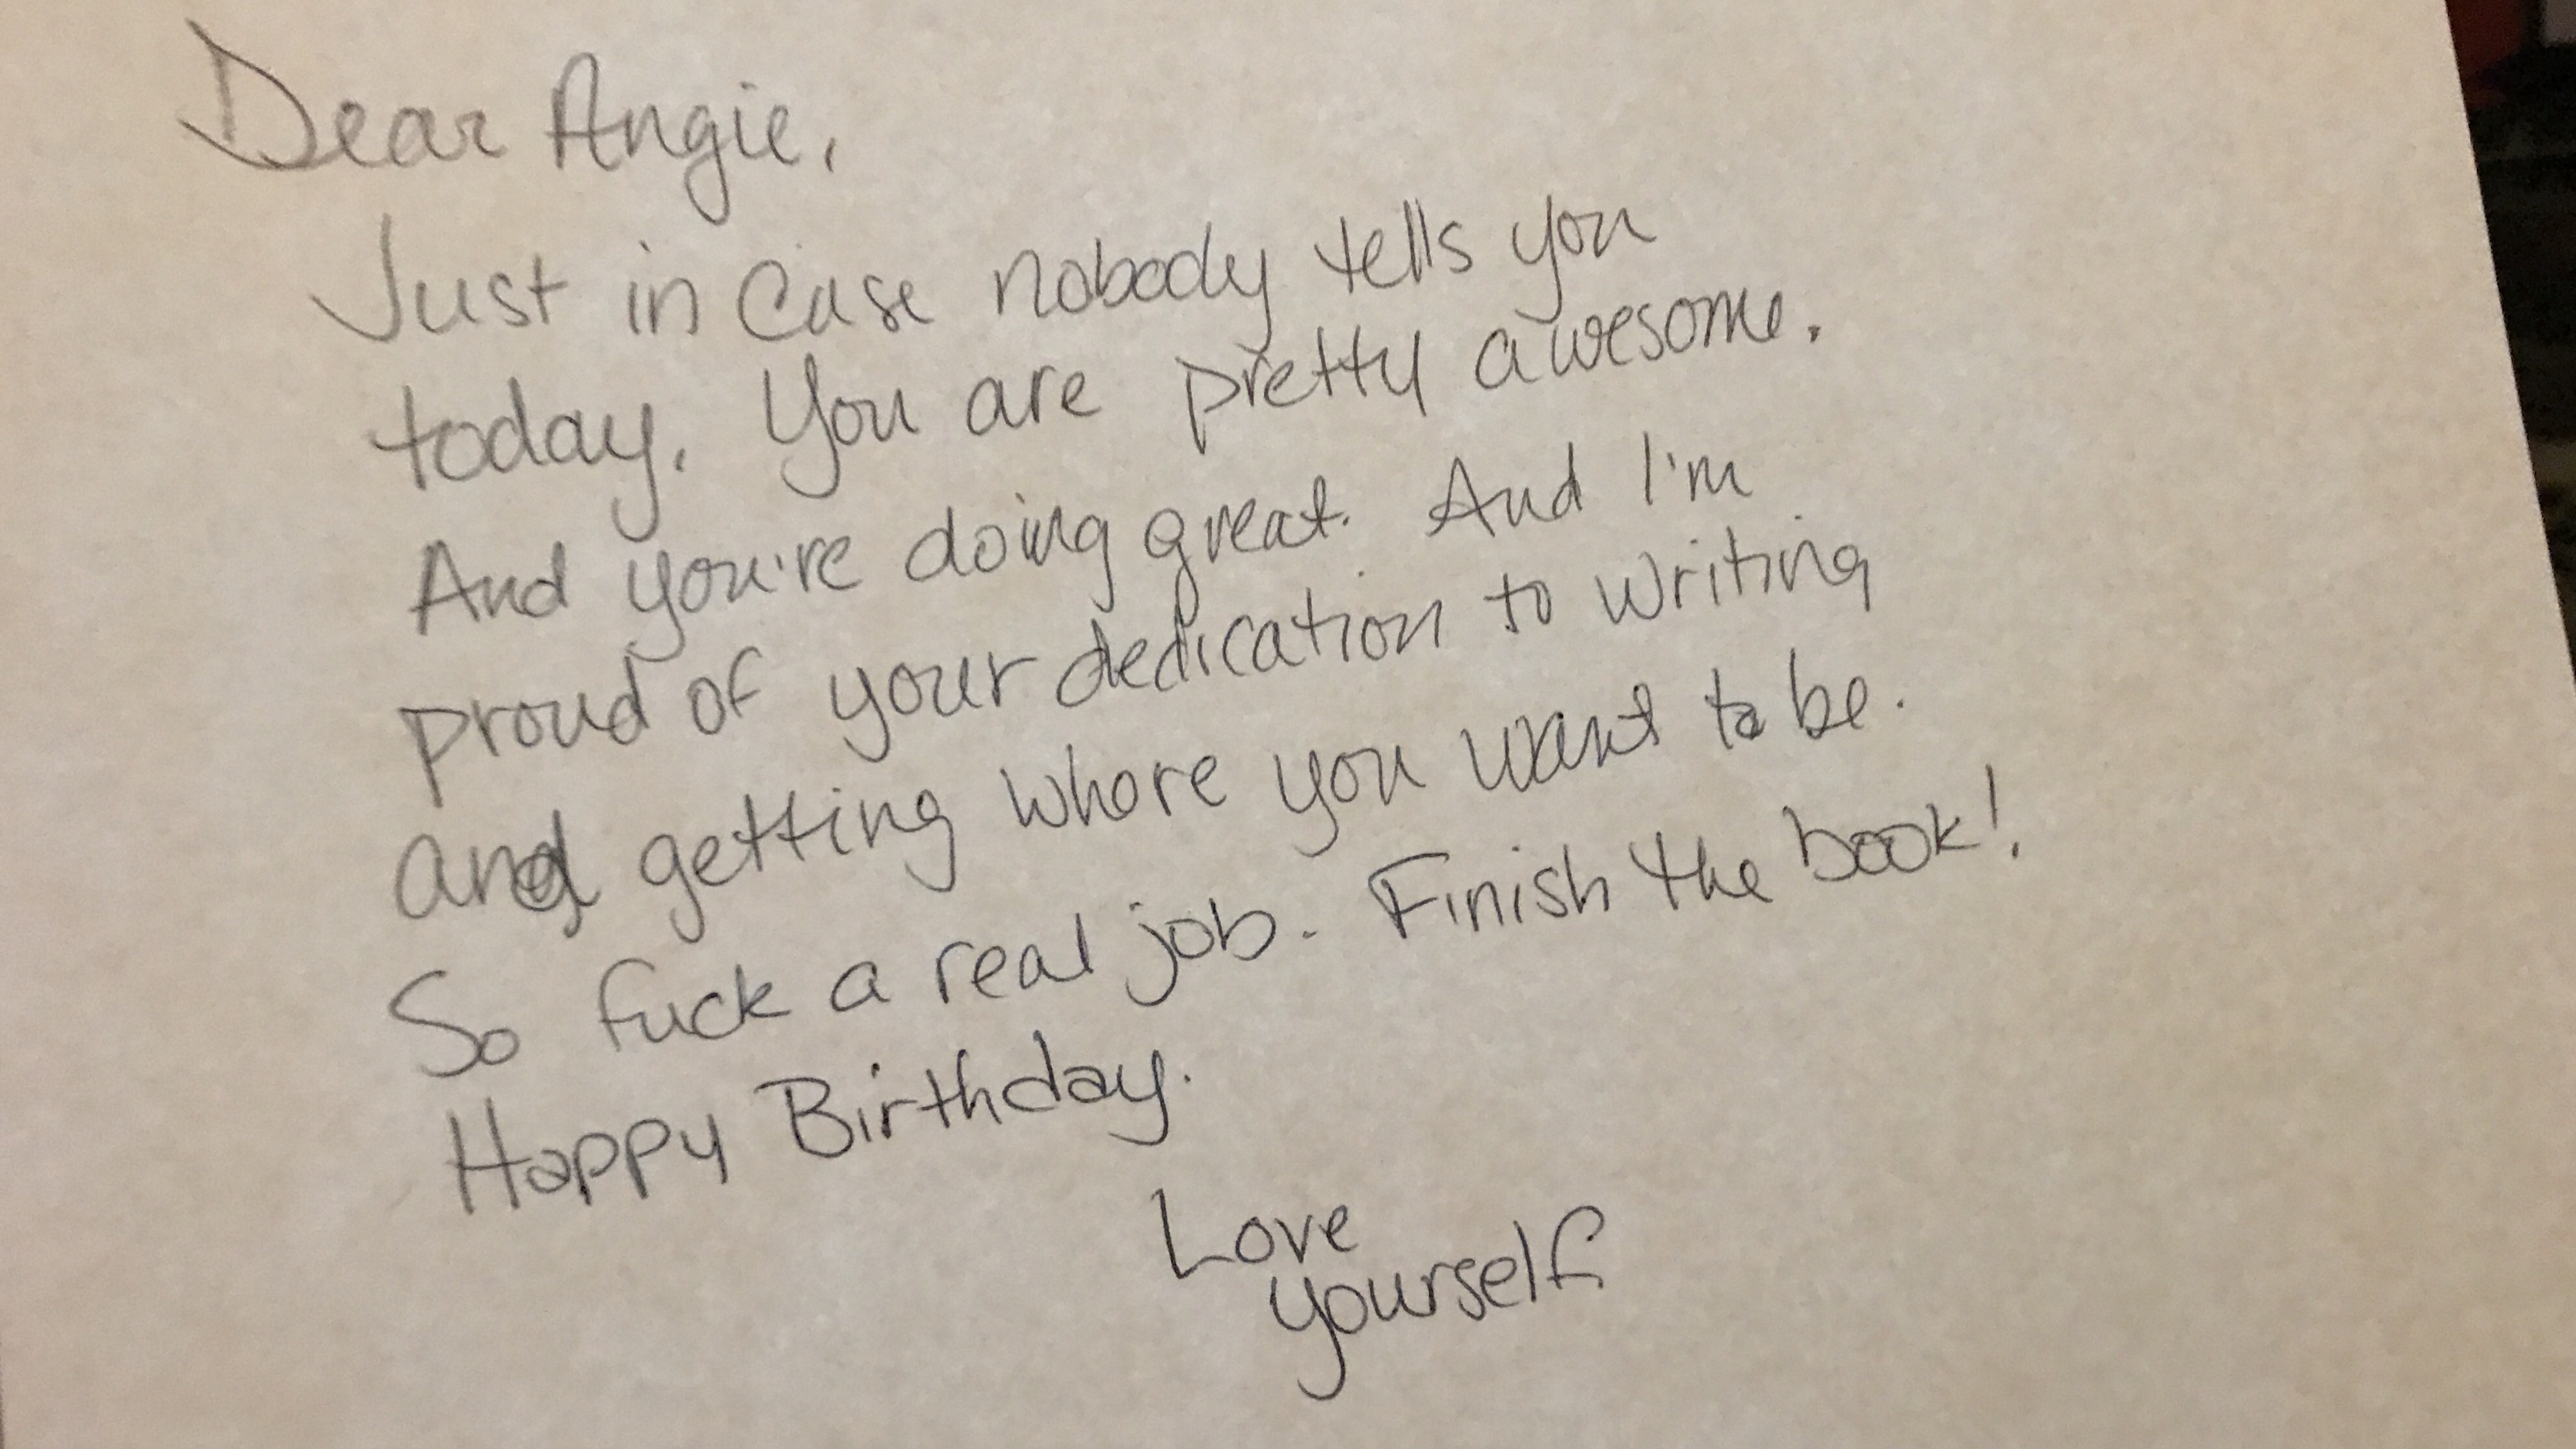 Dear Angie,
Just in case nobody tells you
today. You are pretty awesome.
And you're doing great. And I'm
proud of your dedication to writing
and getting where you want to be.
So fuck a real job. Finish the book!
Happy Birthday.
Love
yourself